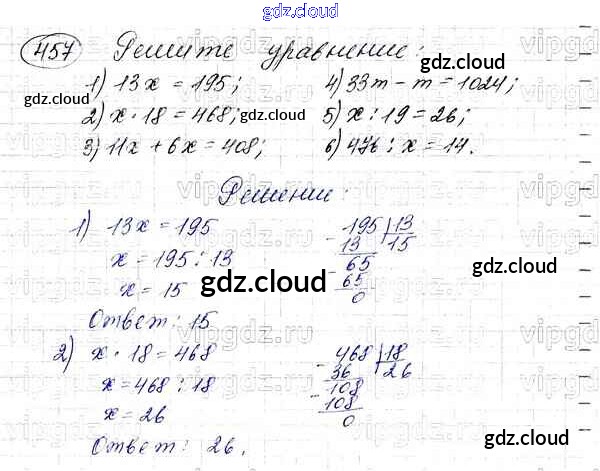 gdz.cloud
457 Решите уравнение:
1) 13x = 195; 4) 33m - m = 1024;
2) x · 18 = 468; 5) x : 19 = 26;
3) 11x + 6x = 408; 6) 476 : x = 14.
Решение:
1) 13x = 195
x = 195 : 13
x = 15
Ответ: 15
195 | 13
- 13 15
- 65
65
0
2) x · 18 = 468
x = 468 : 18
x = 26
Ответ: 26.
468 | 18
- 36 26
- 108
108
0
gdz.cloud
gdz.cloud
gdz.cloud
gdz.cloud
gdz.cloud
gdz.cloud
gdz.cloud
gdz.cloud